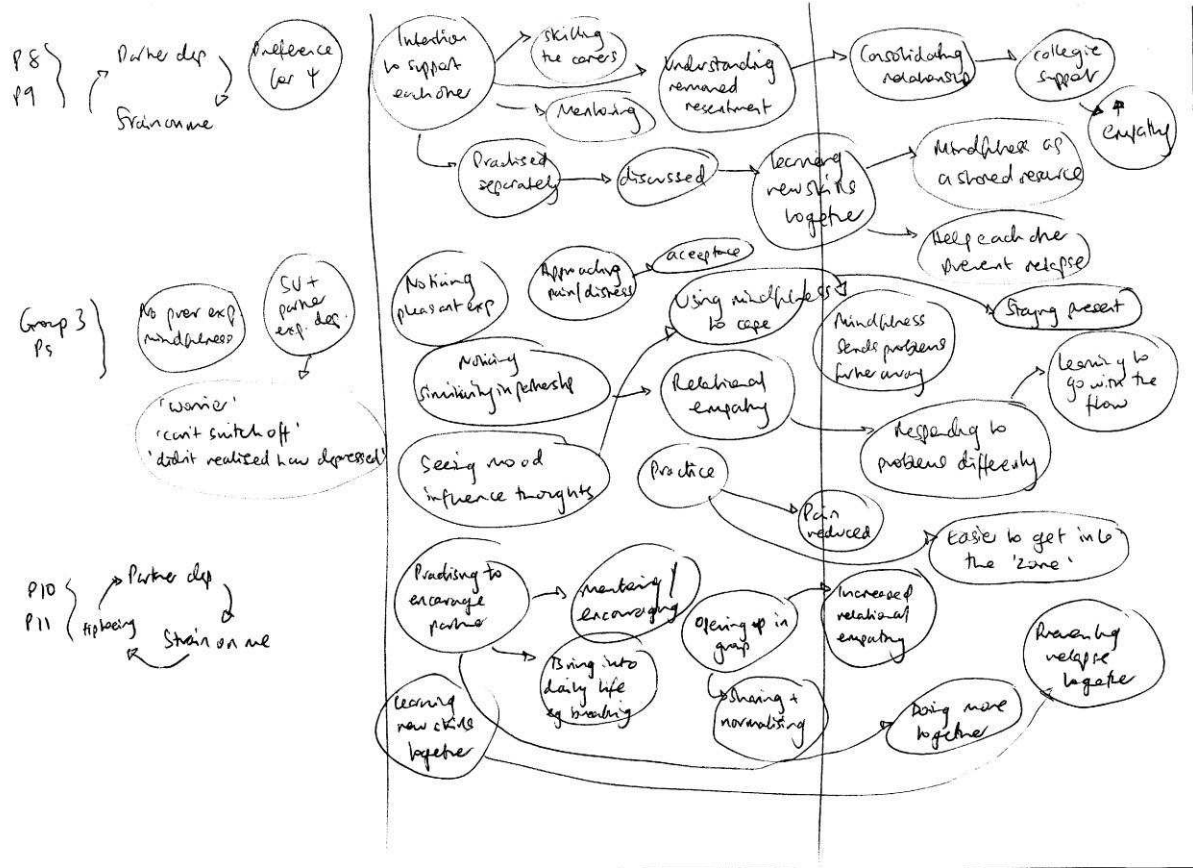 P8
P9
Partner dep
Strain on me
Preference
for Ψ
Intention
to support
each other
skilling
the carers
Mentoring
Understanding
removed
resentment
Consolidating
relationship
collegic
support
↑
empathy
Practised
separately
discussed
learning
new skills
together
Mindfulness as
a shared resource
Help each other
prevent relapse
Group 3
Ps
No prev exp
mindfulness
SU +
partner
exp. dep.
'worrier'
'can't switch off'
'didn't realised how depressed'
Noticing
pleasant exp
Approaching
pain/distress
acceptance
Using mindfulness
to cope
Mindfulness
sends problems
further away
Staying present
Noticing
similarity in partnership
Relational
empathy
Learning to
go with the
flow
Responding to
problems differently
Seeing mood
influence thoughts
Practice
Pain
reduced
Easier to get into
the 'zone'
P10
P11
Partner dep
tiptoeing
Strain on me
Practising to
encourage
partner
mentoring /
encouraging
Bring into
daily life
eg breathing
Opening up in
group
Sharing +
normalising
Increased
relational
empathy
Learning
new skills
together
Doing more
together
Preventing
relapse
together